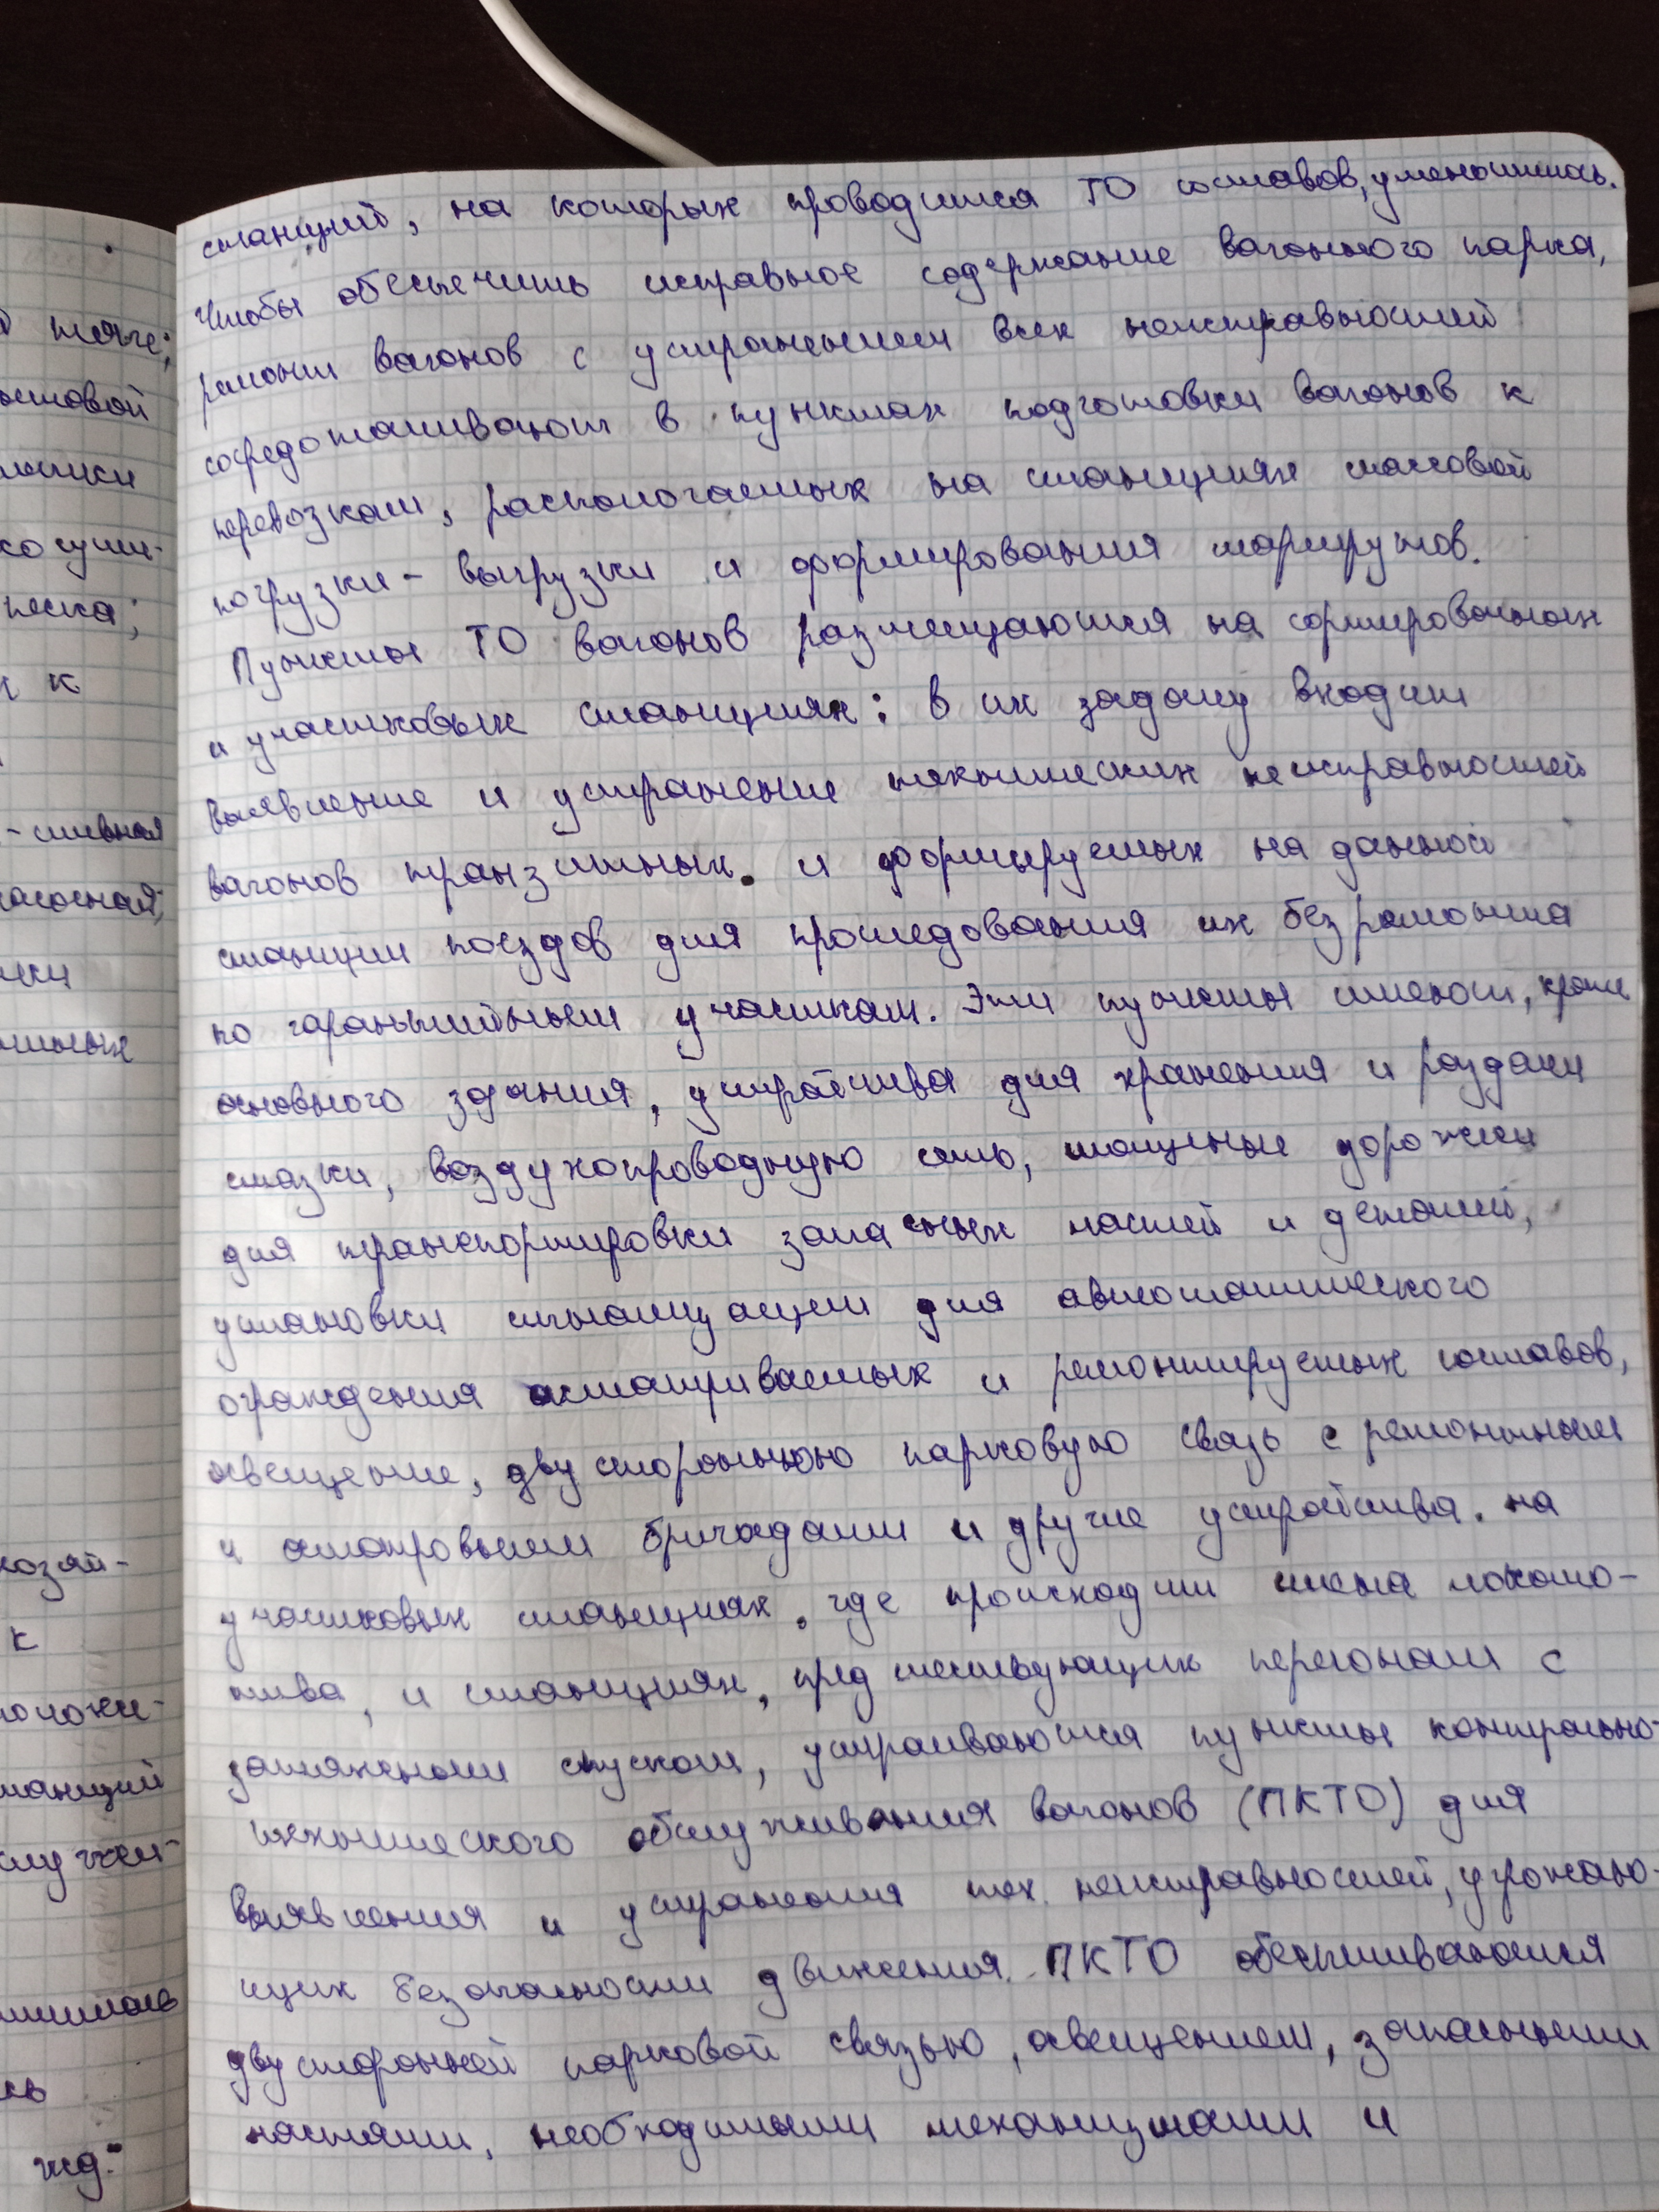 станций, на которых проводится ТО составов, уменьшилось.
Чтобы обеспечить исправное содержание вагонного парка,
ремонт вагонов с устранением всех неисправностей
сосредотачивают в пунктах подготовки вагонов к
перевозкам, распологаемых на станциях массовой
погрузки - выгрузки и формирования маршрутов.
Пункты ТО вагонов размещаются на сортировочных
и участковых станциях: в их задачу входит
выявление и устранение технических неисправностей
вагонов транзитных. и формируемых на данной
станции поездов для проследования их без ремонта
по гарантийным участкам. Эти пункты имеют, кроме
основного здания, устройства для хранения и раздачи
смазки, воздухопроводную сеть, мощеные дорожки
для транспортировки запасных частей и деталей,
установки сигнализации для автоматического
ограждения осматриваемых и ремонтируемых составов,
освещение, двустороннюю парковую связь с ремонтными
и смотровыми бригадами и другие устройства. на
участковых станциях, где происходит смена локомо-
тива, и станциях, предшествующих перегонам с
затяжными спусками, устраиваются пункты контрольно-
технического обслуживания вагонов (ПКТО) для
выявления и устранения тех. неисправностей, угрожаю-
щих безопасности движения. ПКТО обеспечиваются
двусторонней парковой связью, освещением, запасными
частями, необходимыми механизмами и
тяге;
песка;
к
- сливная
хозяй-
к
жд."